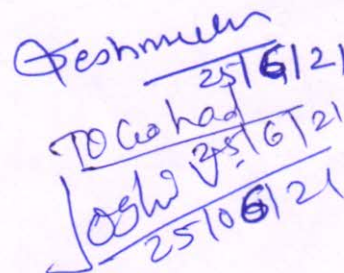 Deshmukh
25/6/21
25/6/21
Joshi V.
25/06/21